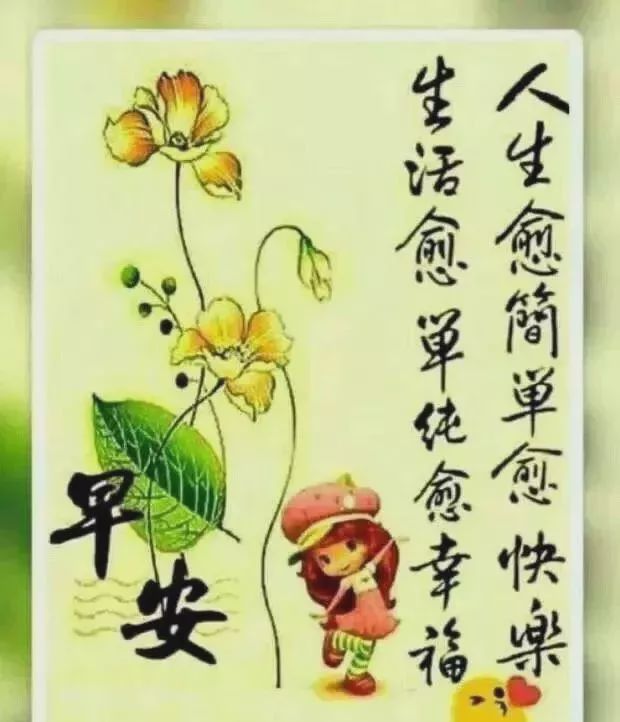 人生愈簡单愈快樂
生活愈单纯愈幸福
早安